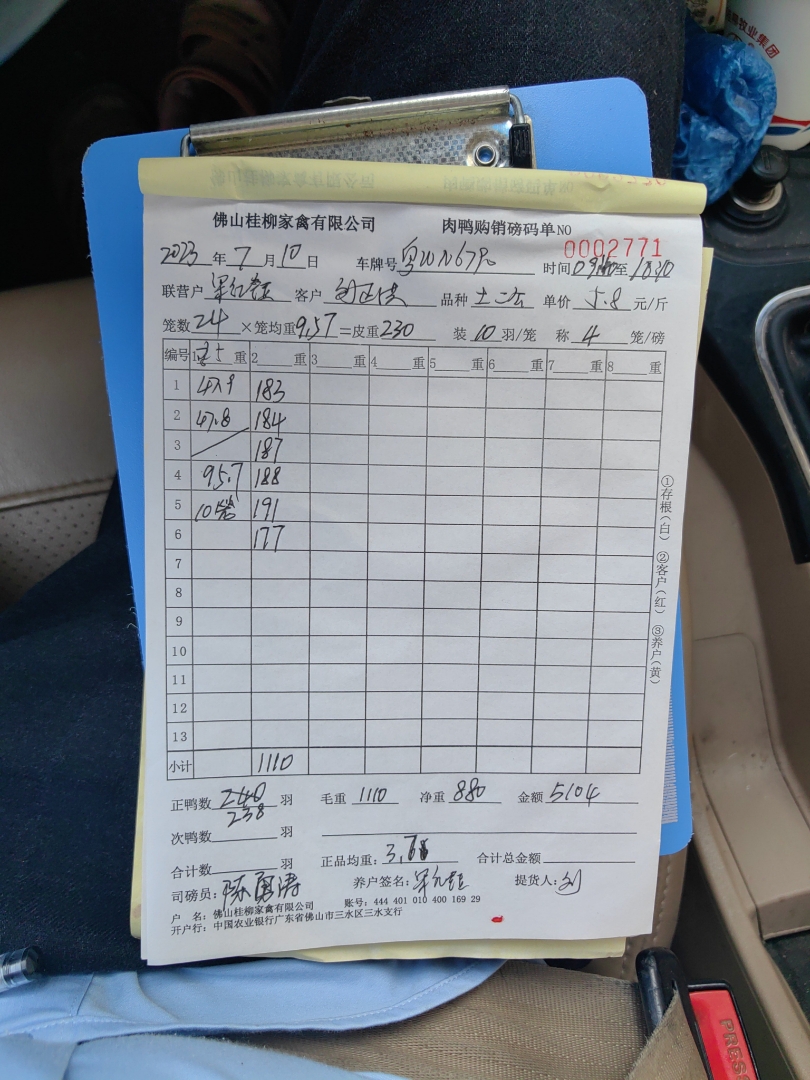 佛山桂柳家禽有限公司 肉鸭购销磅码单 NO 0002771
2023年7月10日 车牌号粤WN67R 时间 至
联营户 客户 品种土二 单价5.8元/斤
笼数24×笼均重9.57=皮重230 装10羽/笼 称4笼/磅
编号 1 重 2 重 3 重 4 重 5 重 6 重 7 重 8 重
1 47.9 183
2 47.8 184
3 187
4 95.7 188
5 10笼 191
6 177
7
8
9
10
11
12
13
小计 1110
正鸭数240羽 毛重1110 净重880 金额5104
238
次鸭数 羽
合计数 羽 正品均重: 合计总金额
司磅员: 养户签名: 提货人:刘
户 名:佛山桂柳家禽有限公司 账号:444 401 010 400 169 29
开户行:中国农业银行广东省佛山市三水区三水支行
①存根(白) ②客户(红) ③养户(黄)
牧业集团
PRESS